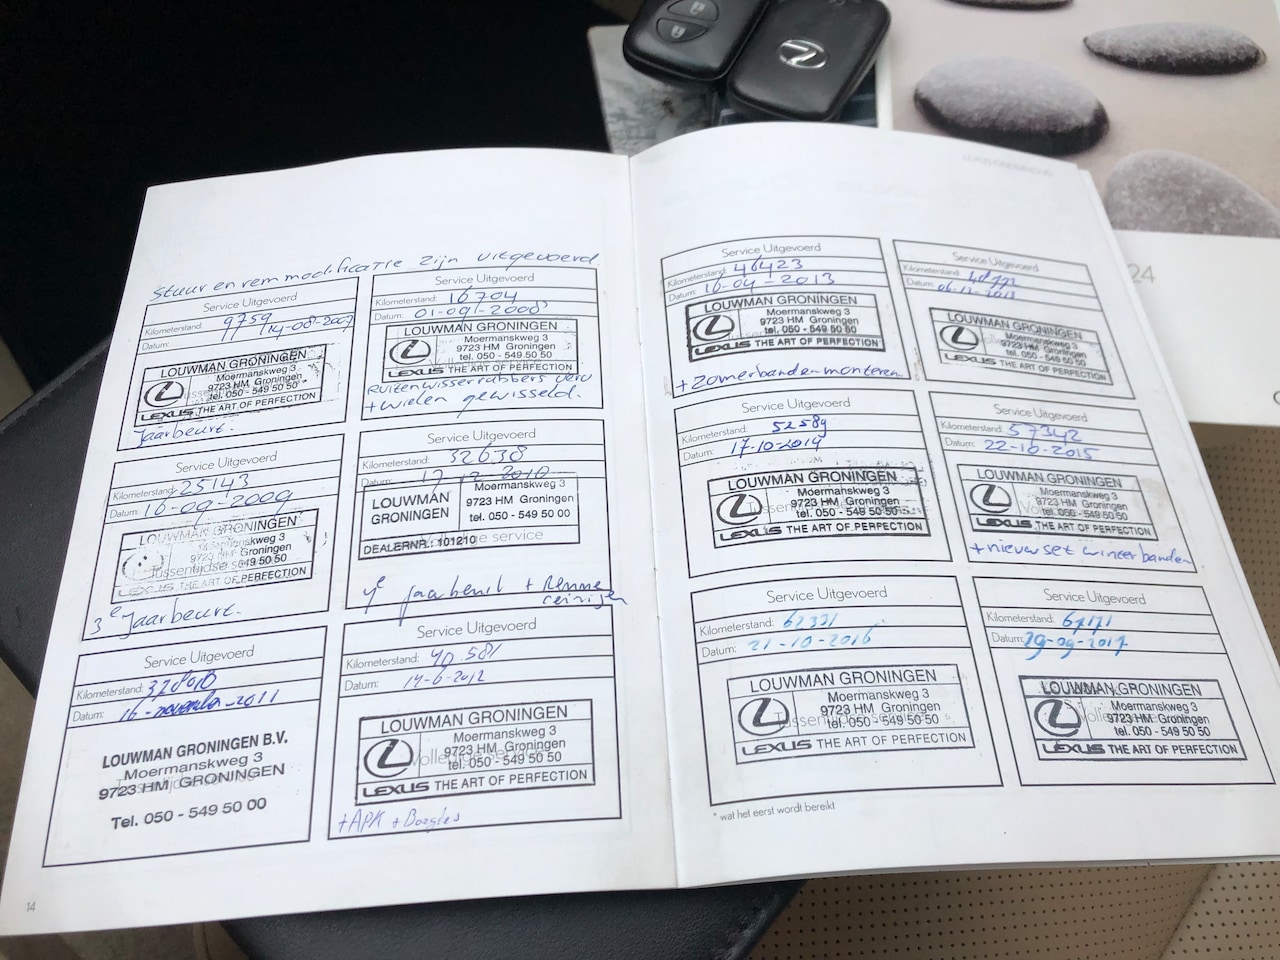 Stuur en rem modificatie zijn uitgevoerd
Service Uitgevoerd
Kilometerstand: 9759
Datum: 14-08-2007
LOUWMAN GRONINGEN
Moermanskweg 3
9723 HM Groningen
tel. 050 - 549 50 50
LEXUS THE ART OF PERFECTION
Jaarbeurt.
Service Uitgevoerd
Kilometerstand: 16704
Datum: 01-09-2008
LOUWMAN GRONINGEN
Moermanskweg 3
9723 HM Groningen
tel. 050 - 549 50 50
LEXUS THE ART OF PERFECTION
Ruitenwisserrubbers verv
+ wielen gewisseld.
Service Uitgevoerd
Kilometerstand: 25143
Datum: 16-09-2009
LOUWMAN GRONINGEN
Moermanskweg 3
9723 HM Groningen
tel. 050 - 549 50 50
Tussentijdse
LEXUS THE ART OF PERFECTION
3e Jaarbeurt.
Service Uitgevoerd
Kilometerstand: 32638
Datum: 2010
LOUWMAN
GRONINGEN
Moermanskweg 3
9723 HM Groningen
tel. 050 - 549 50 00
DEALERNR.: 101210
service
4e jaarbeurt + Remmen
reinigen
Service Uitgevoerd
Kilometerstand:
Datum: 16-november-2011
LOUWMAN GRONINGEN B.V.
Moermanskweg 3
9723 HM GRONINGEN
Tel. 050 - 549 50 00
Service Uitgevoerd
Kilometerstand: 40.581
Datum: 14-6-2012
LOUWMAN GRONINGEN
Moermanskweg 3
9723 HM Groningen
tel. 050 - 549 50 50
LEXUS THE ART OF PERFECTION
+ APK +
14
Service Uitgevoerd
Kilometerstand: 46423
Datum: 16-04-2013
LOUWMAN GRONINGEN
Moermanskweg 3
9723 HM Groningen
tel. 050 - 549 50 50
LEXUS THE ART OF PERFECTION
+ Zomerbanden monteren
Service Uitgevoerd
Kilometerstand:
Datum:
LOUWMAN GRONINGEN
Moermanskweg 3
9723 HM Groningen
tel. 050 - 549 50 50
LEXUS THE ART OF PERFECTION
Service Uitgevoerd
Kilometerstand: 52589
Datum: 17-10-2014
LOUWMAN GRONINGEN
Moermanskweg 3
9723 HM Groningen
tel. 050 - 549 50 50
LEXUS THE ART OF PERFECTION
Service Uitgevoerd
Kilometerstand: 57342
Datum: 22-10-2015
LOUWMAN GRONINGEN
Moermanskweg 3
9723 HM Groningen
tel. 050 - 549 50 50
LEXUS THE ART OF PERFECTION
+ nieuw set winterbanden
Service Uitgevoerd
Kilometerstand: 62331
Datum: 21-10-2016
LOUWMAN GRONINGEN
Moermanskweg 3
9723 HM Groningen
tel. 050 - 549 50 50
LEXUS THE ART OF PERFECTION
Service Uitgevoerd
Kilometerstand: 67171
Datum: 29-09-2017
LOUWMAN GRONINGEN
Moermanskweg 3
9723 HM Groningen
tel. 050 - 549 50 50
LEXUS THE ART OF PERFECTION
* wat het eerst wordt bereikt
24